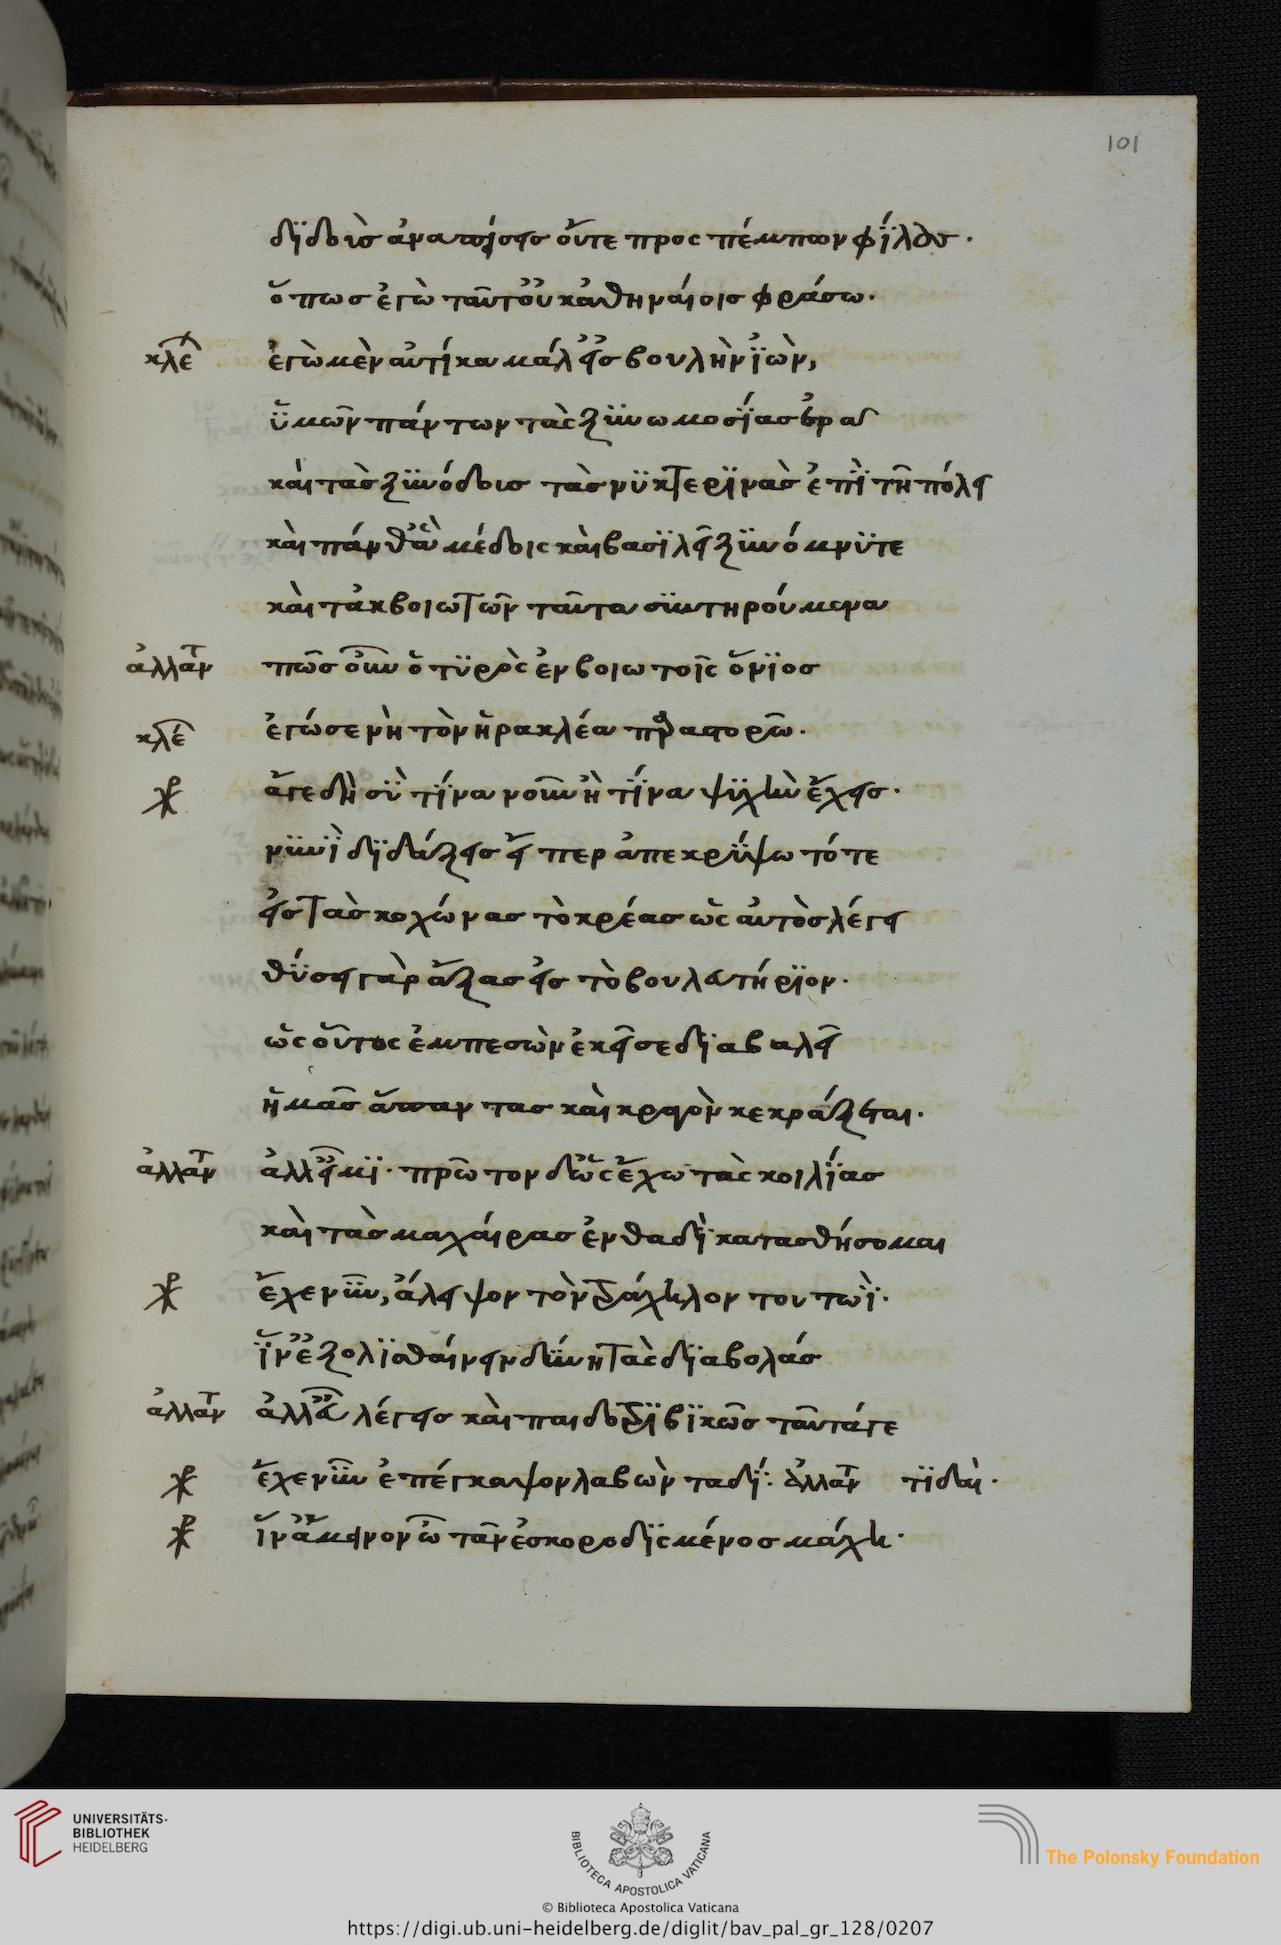 101
δϊδοὺσ ἀναπείσεισ οὔτε προσ πέμπων φίλους.
ὅπωσ ἐγὼ ταῦτ' οὐκ ἀθηναίοισ φράσω.
κλέ ἐγὼ μὲν αὐτίκα μάλ' εἰσ βουλὴν ἰὼν,
ὑμῶν πάντων τὰσ ξυνωμοσίασ ἐρῶ
καὶ τὰσ ξυνόδουσ τὰσ νυκτερινὰσ ἐπὶ τῇ πόλει
καὶ πάνθ' ἃ μέδοισ καὶ βασιλεῖ ξυνόμνυτε
καὶ τἀκ βοιωτῶν ταῦτα συντηρούμενα
ἀλλᾶν πῶσ οὖν ὁ τυρὸσ ἐν βοιωτοῖσ ὤνιοσ
κλέ ἐγώ σε νὴ τὸν ἡρακλέα παραστορῶ.
χρ ἄγε δὴ σὺ τίνα νοῦν ἢ τίνα ψυχὴν ἔχεισ.
νυνὶ διδάξεισ εἴπερ ἀπεκρύψω τότε
εἰσ τὰσ κοχώνασ τὸ κρέασ ὡσ αὐτὸσ λέγει
θύσει γὰρ ἄξασ εἰσ τὸ βουλευτήριον.
ὡσ οὗτοσ ἐμπεσὼν ἐκεῖσε διαβαλεῖ
ἡμᾶσ ἅπαντασ καὶ κραγὸν κεκράξεται.
ἀλλᾶν ἀλλ' εἶμι. πρῶτον δ' ὡσ ἔχω τὰσ κοιλίασ
καὶ τὰσ μαχαίρασ ἐνθαδὶ καταθήσομαι
χρ ἔχε νῦν, ἄλειψον τὸν τράχηλον τουτωΐ.
ἵν' ἐξολισθαίνειν δύνῃ τὰσ διαβολάσ
ἀλλᾶν ἀλλ' εὖ λέγεισ καὶ παιδοτριβικῶσ ταῦτάγε
χρ ἔχε νῦν ἐπέγκαψον λαβὼν ταδί: ἀλλᾶν τί δαί.
χρ ἵν' ἄμεινον ὦ τᾶν ἐσκοροδισμένοσ μάχῃ.
UNIVERSITÄTS-
BIBLIOTHEK
HEIDELBERG
BIBLIOTECA APOSTOLICA VATICANA
The Polonsky Foundation
© Biblioteca Apostolica Vaticana
https://digi.ub.uni-heidelberg.de/diglit/bav_pal_gr_128/0207